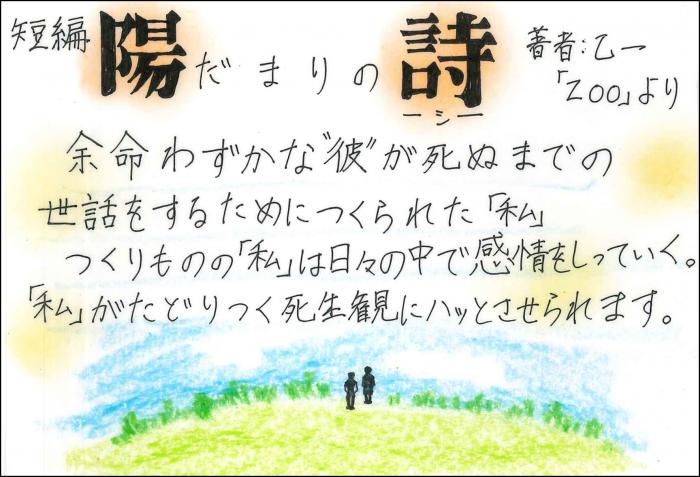 短編 陽だまりの詩
ーシー
著者:乙一
「ZOO」より
余命わずかな"彼"が死ぬまでの
世話をするためにつくられた「私」
つくりものの「私」は日々の中で感情をしっていく。
「私」がたどりつく死生観にハッとさせられます。